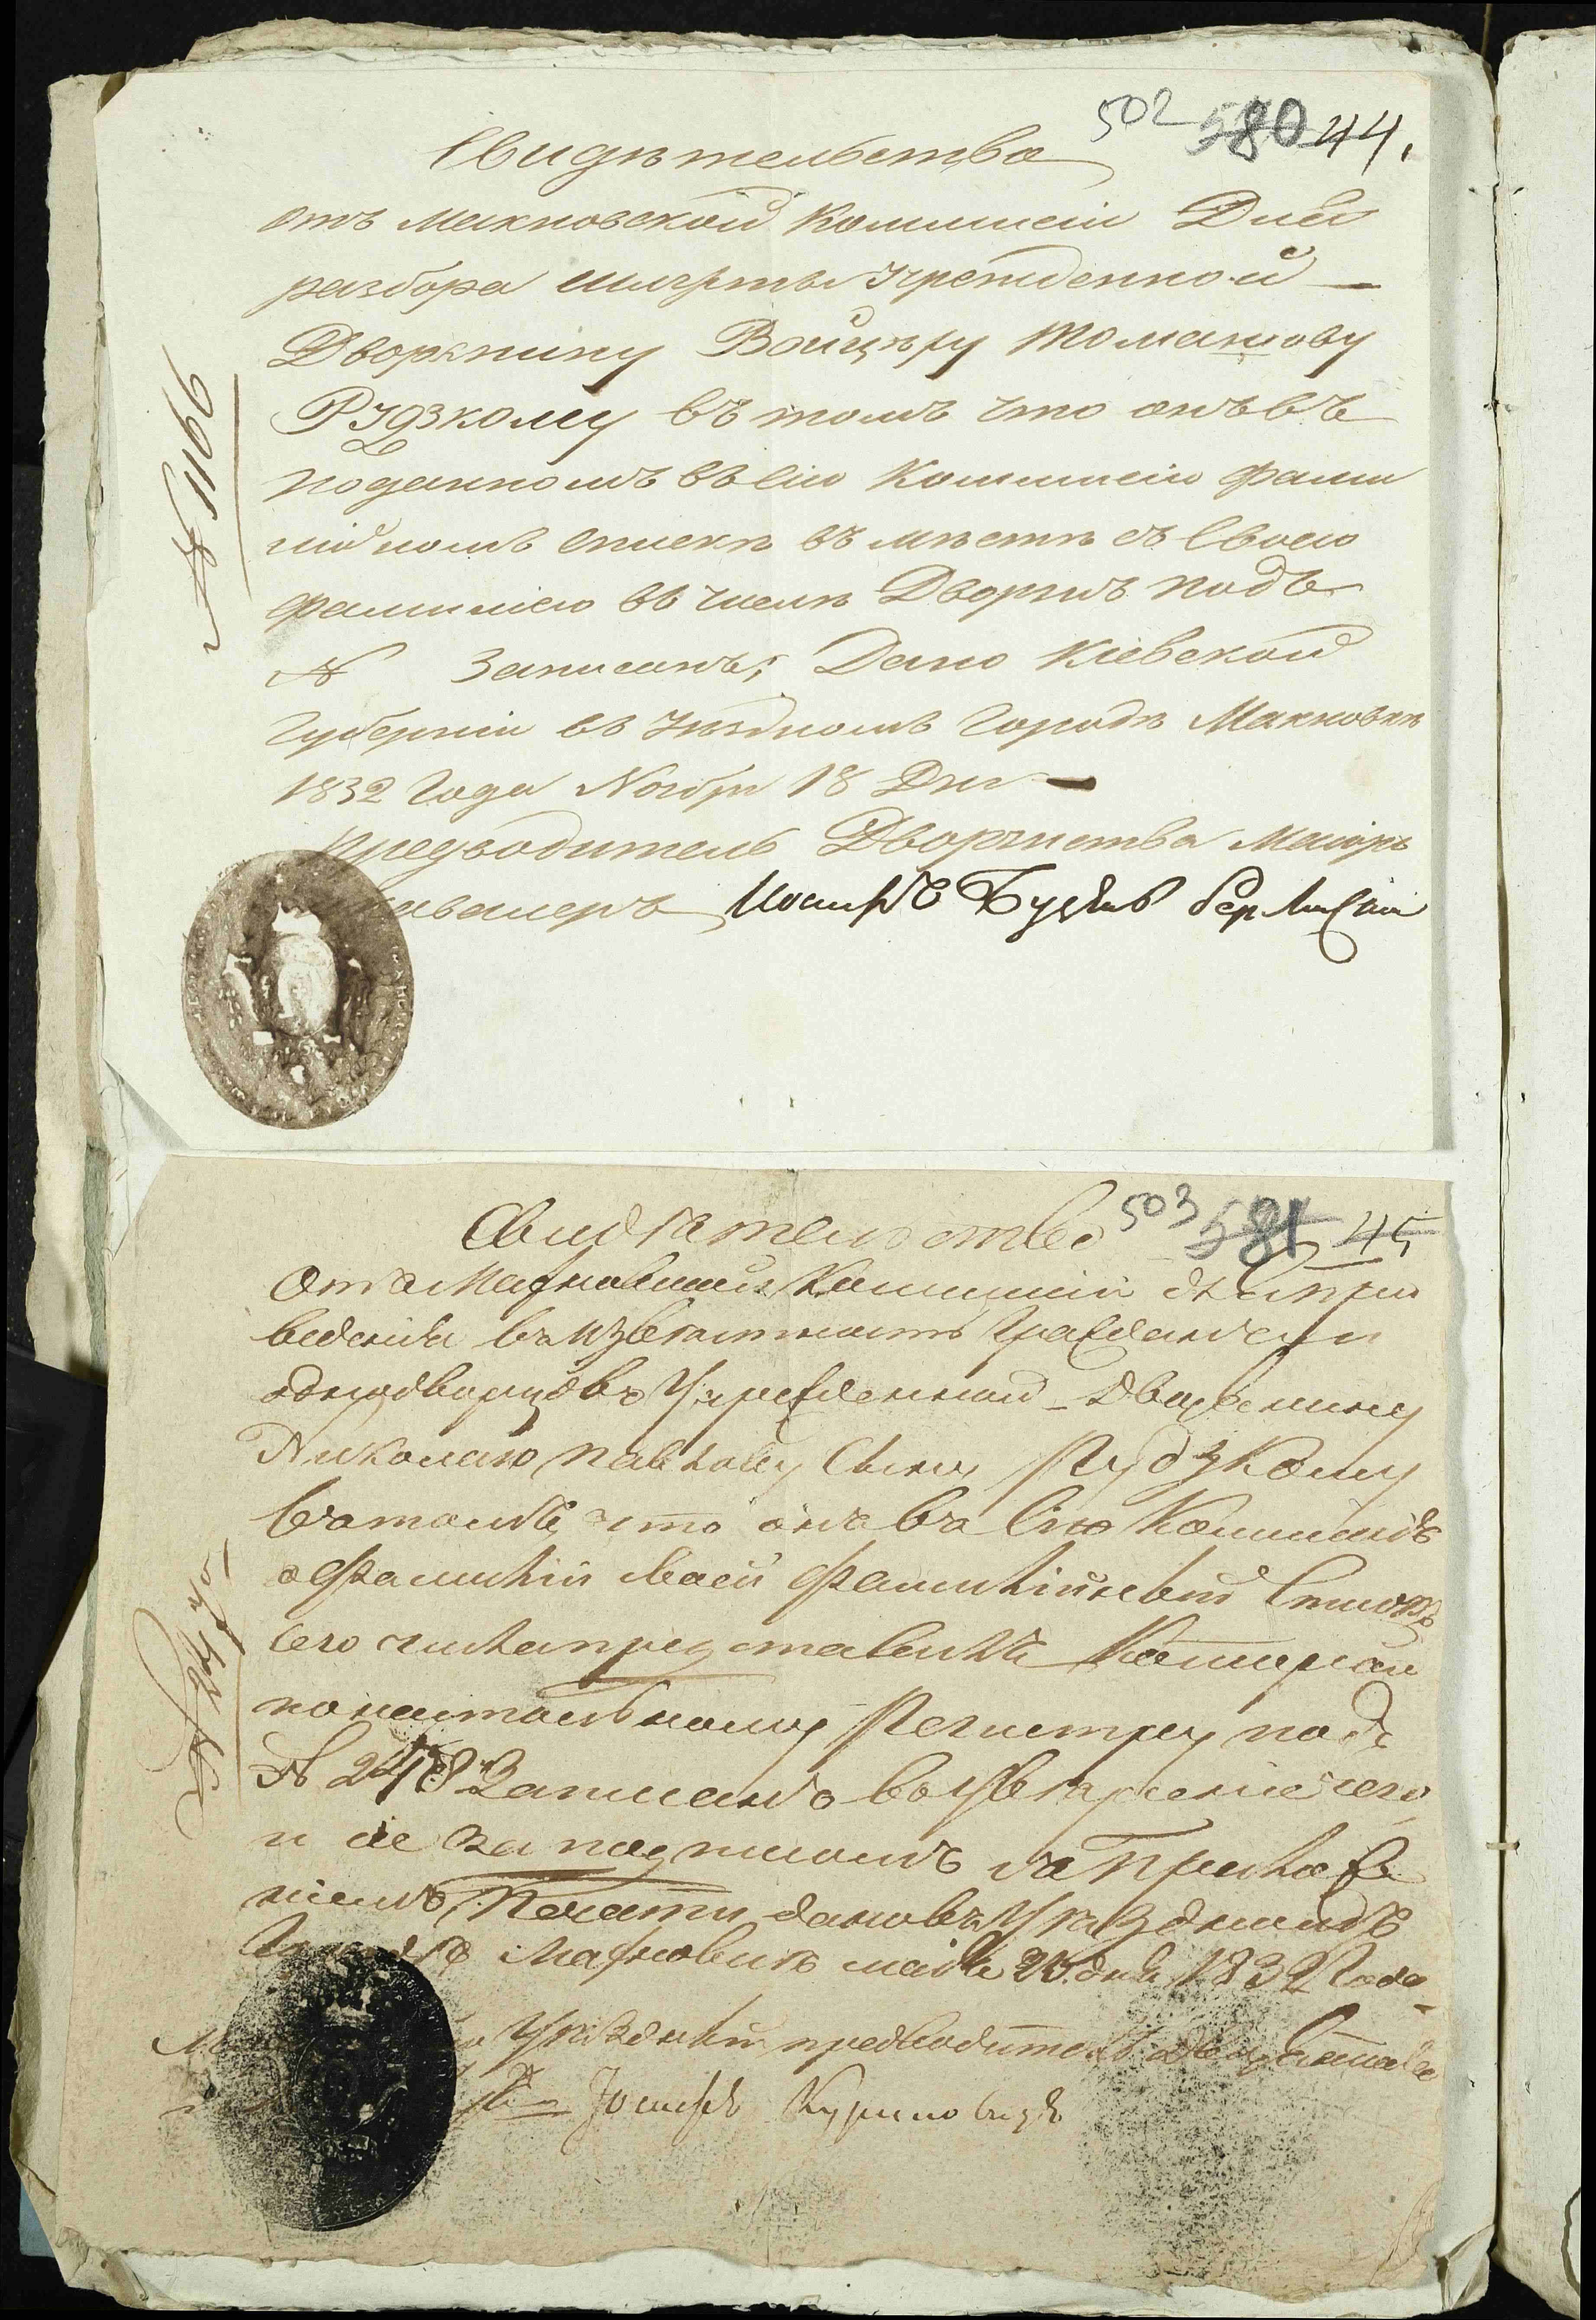 502 580 44.
Свидѣтельство
отъ Махновской Коммисіи Для
разбора шляхты Учрежденной —
Дворянину Войцѣху Томашову
Рудзкому въ томъ что онъ въ
поданномъ въ Сію Коммисію фами
лійномъ списке въ мѣстѣ съ Своею
фамиліею въ числѣ Дворянъ подъ
№ Записанъ; Дано Кіевской
Губерніи въ Уѣздномъ Городѣ Махновкѣ
1832 Года Ноября 18 Дня —
Предводитель Дворянства Маіоръ
кавалеръ Іосифъ
№ 1166
503 581 45
Свидѣтельство
Отъ Махновской Коммиссіи для при
веденія въ извѣстность Гражданъ и
однодворцовъ Учрежденной — Дворянину
Николаю Павлову Сыну Рудзкому
въ томъ, что онъ въ Сію Коммисію
о фамиліи своей фамилійный Списокъ
сего числа представилъ Который
по настольному Регистру подъ
№ 248 Записанъ въ увѣреніе чего
и сіе за подписомъ съ Приложе
ніемъ Печати дано въ Уѣздномъ
Городѣ Махновкѣ маія 23 дня 1832 Года
Уѣздный предводитель дворянства
Іосифъ